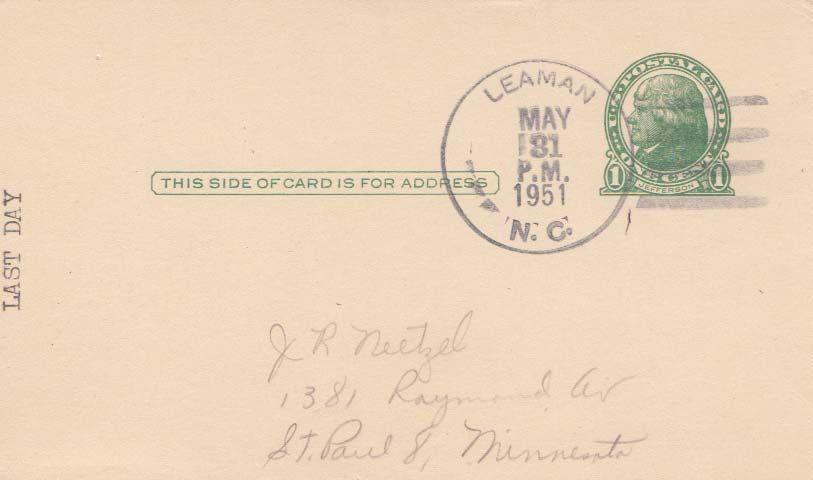 LEAMAN
MAY
31
P.M.
1951
N. C.
U.S. POSTAL CARD
ONE CENT
1 JEFFERSON 1
THIS SIDE OF CARD IS FOR ADDRESS
LAST DAY
J R Neetzel
1381 Raymond Av
St. Paul 8, Minnesota